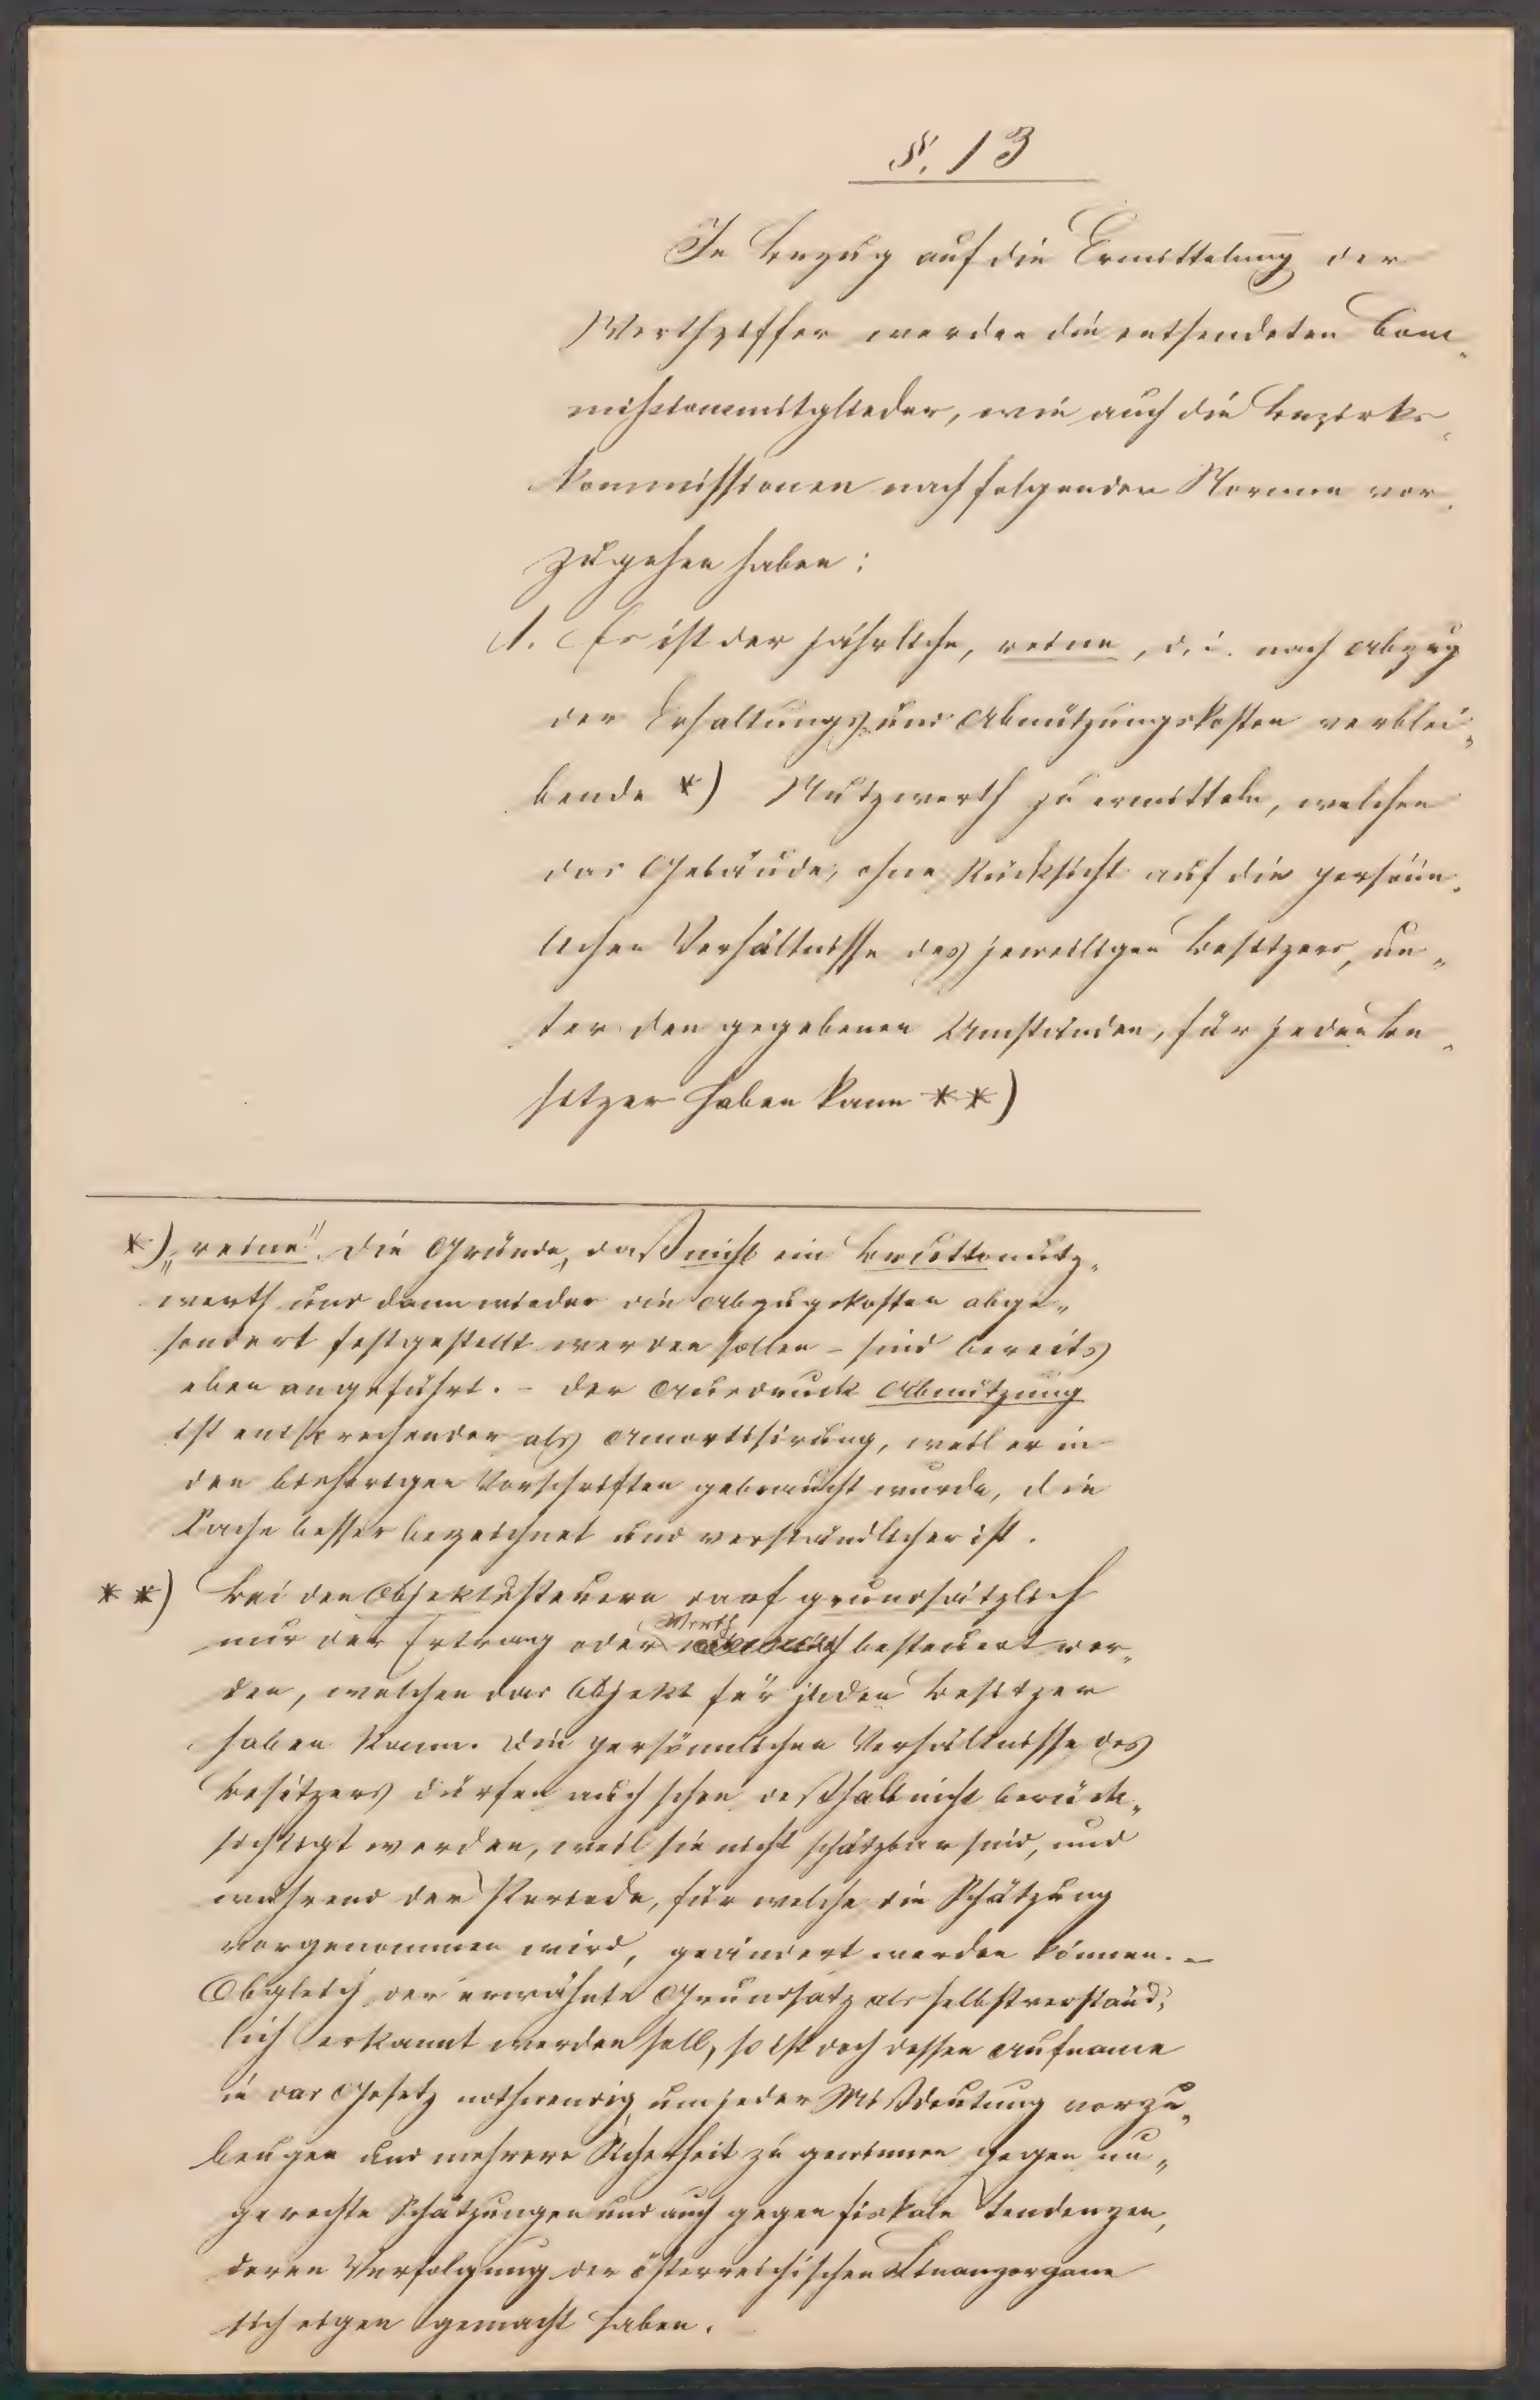 §. 13
In Bezug auf die Ermittelung der
Werthziffer werden die entsendeten Com„
missionsmitglieder, wie auch die Bezirks„
kommissionen nach folgenden Normen vor„
zugehen haben:
1. Es ist der jährliche, reine, d. i. nach Abzug
der Erhaltungs und Abnützungskosten verblei„
bende *) Nutzwerth zu ermitteln, welchen
das Gebäude, ohne Rücksicht auf die persön„
lichen Verhältnisse des jeweiligen Besitzers, un„
ter den gegebenen Umständen, für jeden Be„
sitzer haben kann **)
*) „reine“. Die Gründe, daß nicht ein Bruttonutz„
werth und dann wieder die Abzugskosten abge„
sondert festgestellt werden sollen – sind bereits
oben angeführt. – Der Ausdruck Abnützung
ist entsprechender als Amortisirung, weil er in
den bisherigen Vorschriften gebraucht wurde, die
Sache besser bezeichnet und verständlicher ist.
**) Bei den Objektssteuern darf grundsätzlich
nur der Ertrag oder Werth besteuert wer„
den, welchen das Objekt für jeden Besitzer
haben kann. Die persönnlichen Verhältnisse des
Besitzers dürfen auch schon deßhalb nicht berück„
sichtigt werden, weil sie nicht schätzbar sind, und
während der Periode, für welche die Schätzung
vorgenommen wird, geändert werden können. –
Obgleich der erwähnte Grundsatz als selbstverständ„
lich erkannt werden soll, so ist doch dessen Aufname
in das Gesetz nothwendig, um jeder Mißdeutung vorzu„
beugen und mehrere Sicherheit zu gewinnen gegen un„
gerechte Schätzungen und auch gegen fiskale Tendenzen,
deren Verfolgung die österreichischen Finanzorgane
sich eigen gemacht haben.